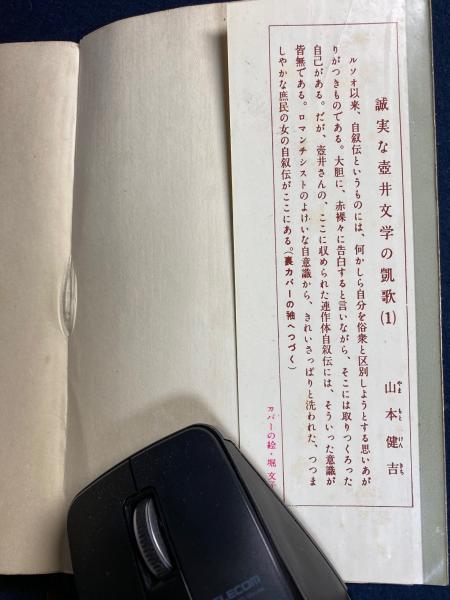 誠実な壺井文学の凱歌(1)
山本健吉
やま もと けん きち
ルソオ以来、自叙伝というものには、何かしら自分を俗衆と区別しようとする思いあが
りがつきものである。大胆に、赤裸々に告白すると言いながら、そこには取りつくろった
自己がある。だが、壺井さんの、ここに収められた連作体自叙伝には、そういった意識が
皆無である。ロマンチシストのよけいな自意識から、きれいさっぱりと洗われた、つつま
しやかな庶民の女の自叙伝がここにある。(裏カバーの袖へつづく)
カバーの絵・堀 文子
ELECOM